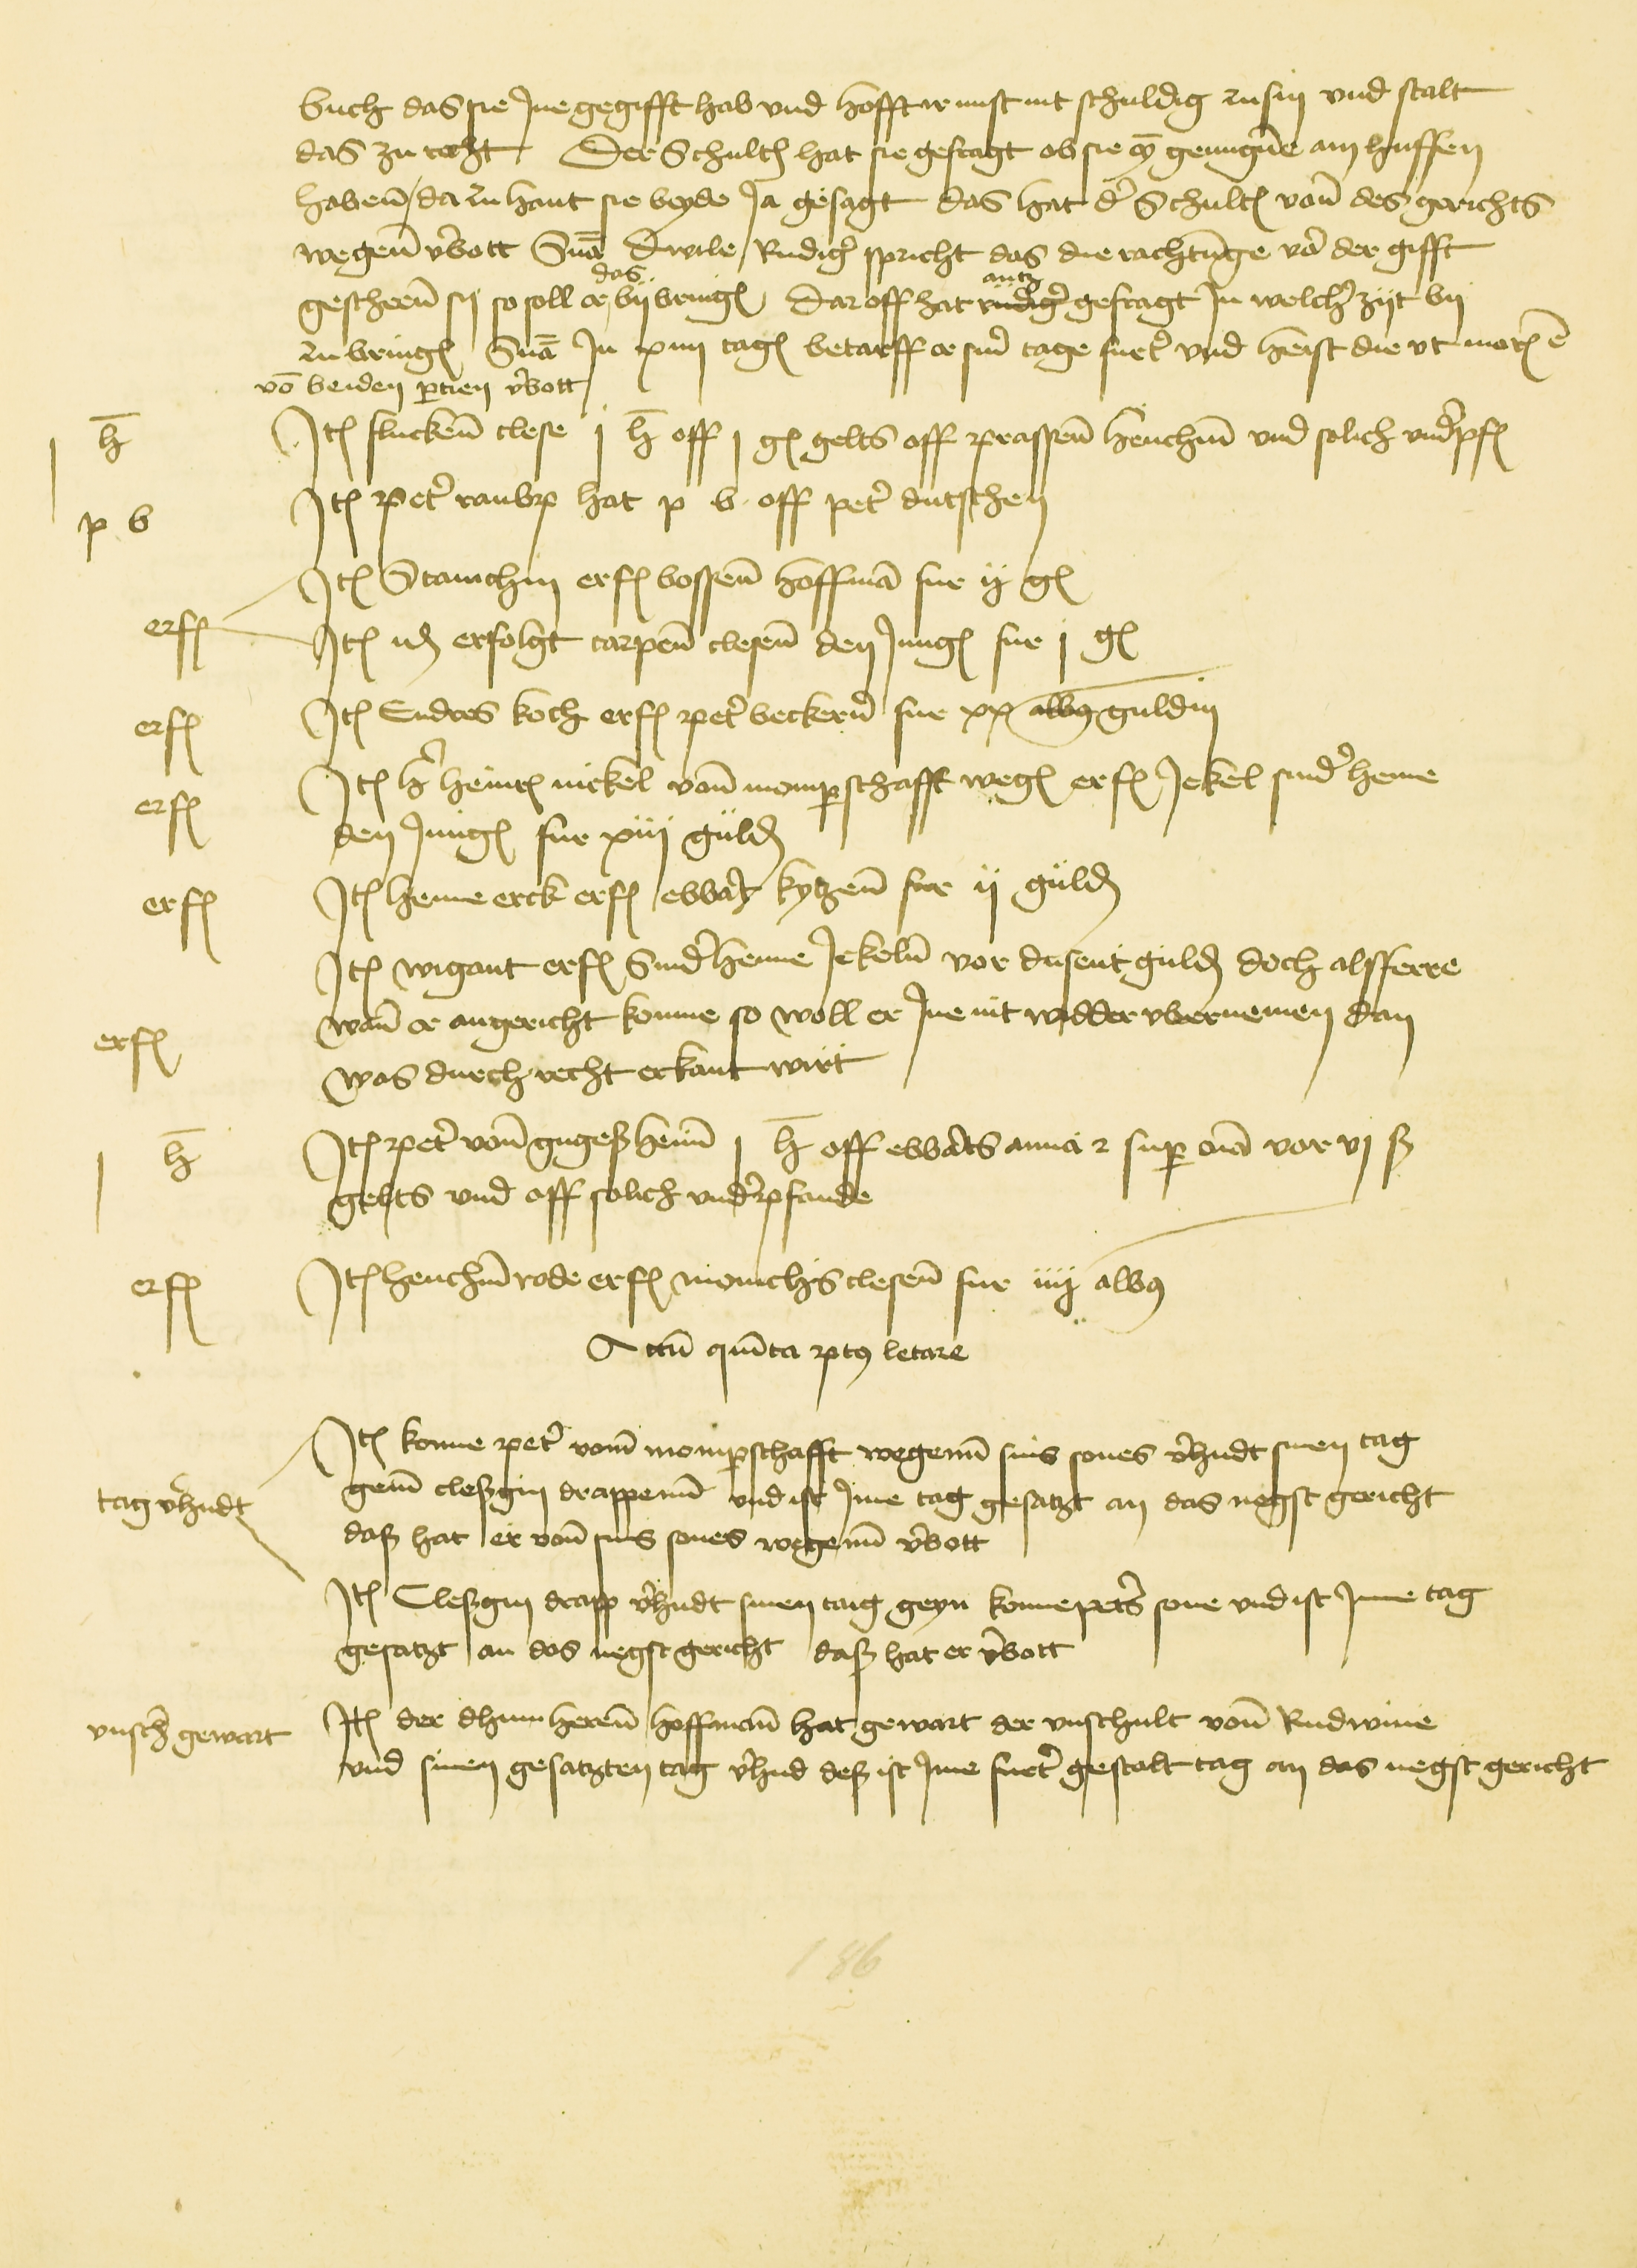 buch das sie Jne gegifft hab und hofft ir nust nit schuldig zu sin und stalt
das zu recht Der Schulth hat sie gefragt ob sie eȳ genugūe am huffen
habenn da zu hant sie beyde Ja gesagt das hat d' Schulth vonn des gerichts
wegenn v'bott Snā Dwile Rudig' spricht das die rachtūnge vor der gifft
das antz
gescheenn sij so soll er bij bringē Dar off hat rudig' gefragt Jn welch' zijt bij
zu bringē Snā Jn xiiij tagē betarff er sin' tage furt' und heist die ut morē ē
vō beiden ptien v'bott
h̄ Jtē fluckenn clese j h̄ off j gē gelts off prassenn henchinn und solich und'pfē
p b Jtē pet' raubp hat p b off pet' dutschen
Jtē Stamchin erfē bossenn hoffmā fur ij gē
erfē
Jtē idē erfolgt carpenn clesenn den Jungē fur j gē
erfē Jtē Endres koch erfē pet' beckern' fur xx albus guldin
erfē Jtē h' heinrē nickel vonn momparschafft wegē erfē Jekel sind' henne
den Jungē fur xiij guldē
erfē Jtē henne erck erfē ebbārt kytzenn fur ij guldē
Jtē wigant erfē Sind'henne Jekeln vor dusent guldē doch alsferre
wann er an gericht komme so woll er Jne nit widder ubernemen dan
erfē
was durch recht erkant wirt
h̄ Jtē pet' vonn gugeßheim j h̄ off ebbārts anna et sup om̄a vor vj ß
gelts und off solich und'pfande
erfē Jtē henchin rode erfē monichs clesenn fur iiij albus
Actū quīta ptus letare
Jtē konne pet' vonn momparschafft wegenn sins sones v'hudt sinen tag
tag v'hudt genn cleßgin drappenn und ist Jme tag gesatzt an das negst gericht
daß hat er vonn sins sones wegenn v'bott
Jtē Cleßgin drapp v'hudt sinen taig geyn konne pet's sone und ist Jme tag
gesatzt an das negst gericht daß hat er v'bott
unsch' gewart Jtē der dhum herenn hoffmann hat gewart der unschult vonn Rudwine
und sinen gesatzten tag v'hud deß ist Jme furt' gestalt tag an das negst gericht
186